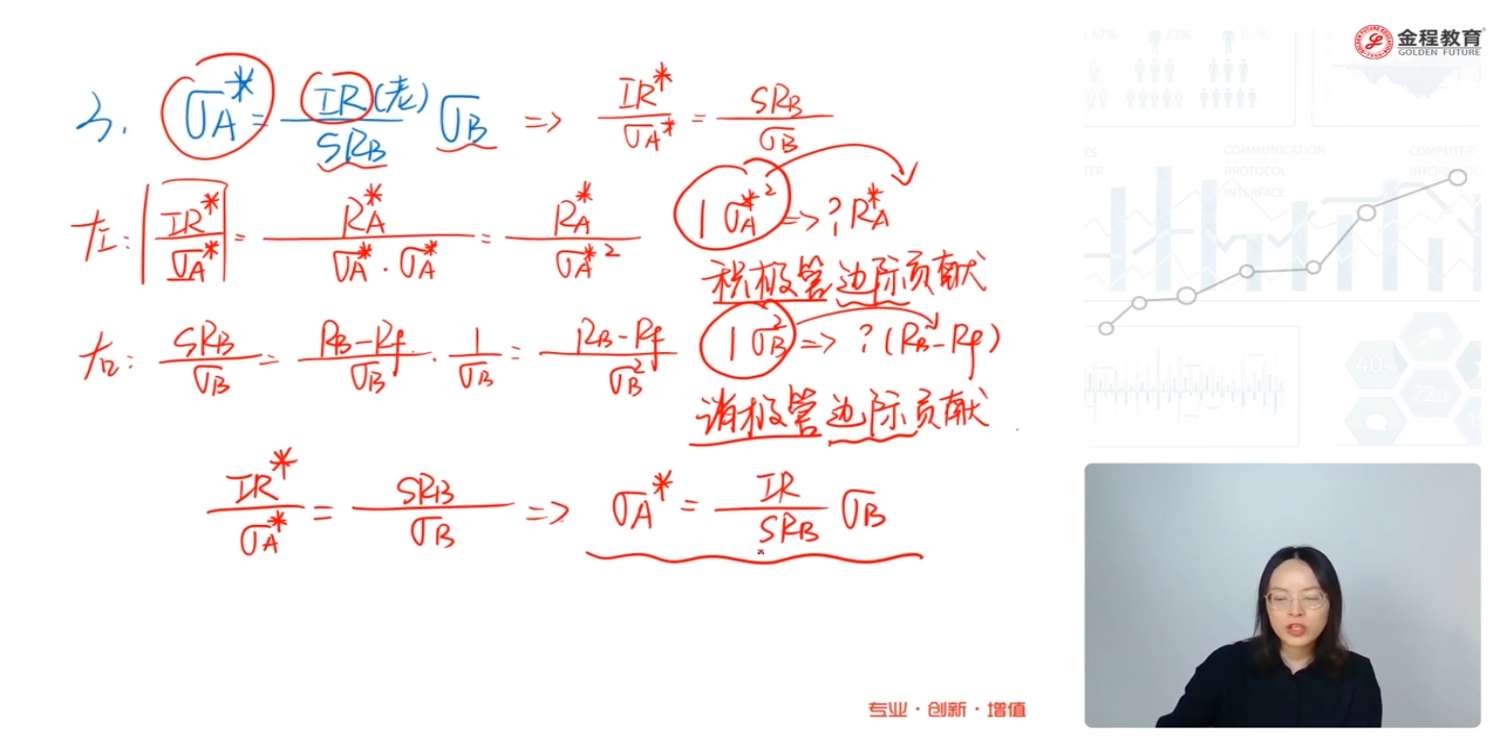 金程教育
GOLDEN FUTURE
3. σA* = IR(老)/SRB σB => IR*/σA* = SRB/σB
左: |IR*/σA*| = RA*/(σA*·σA*) = RA*/σA*² 1 σA*² => ? RA*
积极管边际贡献
右: SRB/σB = (RB-Rf)/σB · 1/σB = (RB-Rf)/σB² 1 σB² => ? (RB-Rf)
消极管边际贡献
IR*/σA* = SRB/σB => σA* = IR/SRB σB
COMMUNICATION
PROTOCOL
INTERFACE
专业·创新·增值